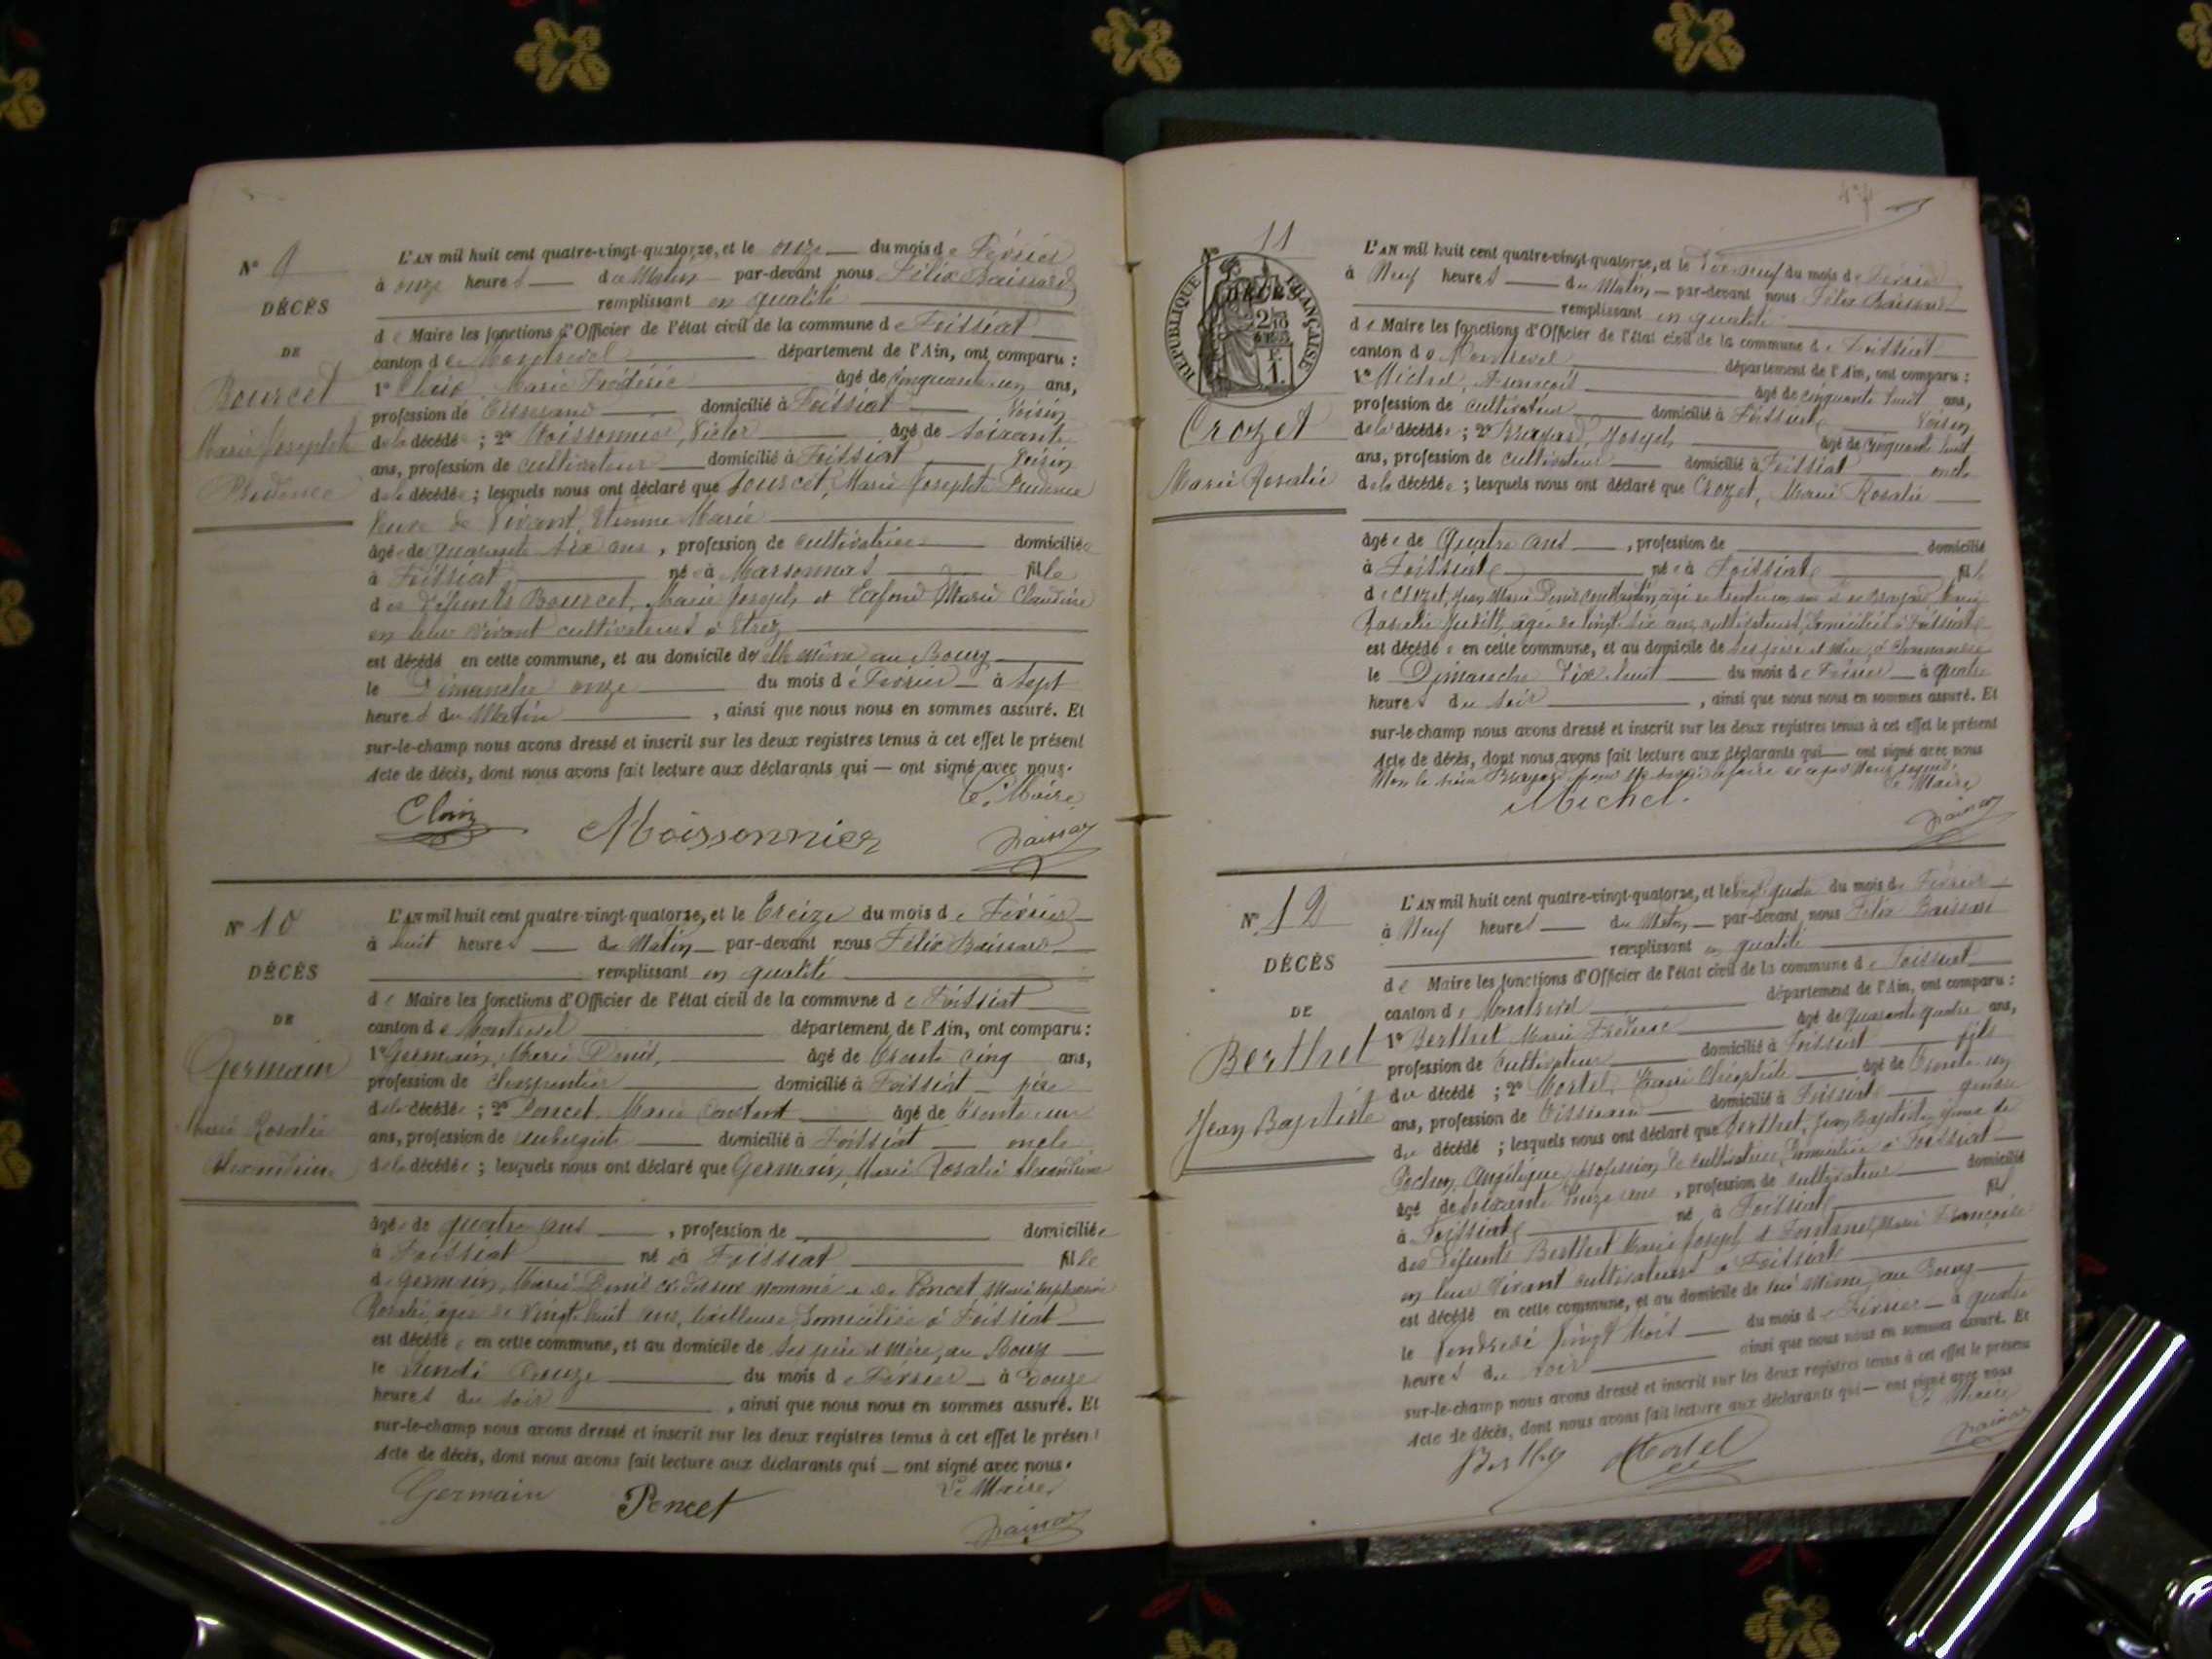 N° 9
DÉCÈS
DE
Bourcet
Marie Josephte
Prudence
L'AN mil huit cent quatre-vingt-quatorze, et le onze du mois de Février
à onze heures du Matin par-devant nous Félix Baissard
remplissant en qualité
de Maire les fonctions d'Officier de l'état civil de la commune de Foissiat
canton de Montrevel département de l'Ain, ont comparu :
1° Cloix, Marie Frédéric âgé de cinquante un ans,
profession de Tisserand domicilié à Foissiat Voisin
de la décédée ; 2° Moissonnier, Victor âgé de soixante
ans, profession de cultivateur domicilié à Foissiat Voisin
de la décédée ; lesquels nous ont déclaré que Bourcet, Marie Josephte Prudence
Veuve de Vivant, Etienne Marie
âgée de quarante six ans, profession de cultivatrice domiciliée
à Foissiat née à Marsonnas fille
des défunts Bourcet, Marie Joseph et Lafond Marie Claudine
en leur vivant cultivateurs à Etrez
est décédé en cette commune, et au domicile d'elle même au Bourg
le Dimanche onze du mois de Février à sept
heures du Matin, ainsi que nous nous en sommes assuré. Et
sur-le-champ nous avons dressé et inscrit sur les deux registres tenus à cet effet le présent
Acte de décès, dont nous avons fait lecture aux déclarants qui — ont signé avec nous.
Le Maire
Cloix Moissonnier Baissard
N° 10
DÉCÈS
DE
Germain
Marie Rosalie
Alexandrine
L'AN mil huit cent quatre-vingt-quatorze, et le Treize du mois de Février
à huit heures du Matin par-devant nous Félix Baissard
remplissant en qualité
de Maire les fonctions d'Officier de l'état civil de la commune de Foissiat
canton de Montrevel département de l'Ain, ont comparu :
1° Germain, Marie Denis, âgé de Trente cinq ans,
profession de Charpentier domicilié à Foissiat père
de la décédée ; 2° Poncet, Marie Constant âgé de trente un
ans, profession de aubergiste domicilié à Foissiat oncle
de la décédée ; lesquels nous ont déclaré que Germain, Marie Rosalie Alexandrine
âgée de quatre ans, profession de domiciliée
à Foissiat née à Foissiat fille
de Germain, Marie Denis ci-dessus nommé et de Poncet Marie
Rosalie, agée de Vingt huit ans, tailleuse, domiciliée à Foissiat
est décédée en cette commune, et au domicile de ses père et mère, au Bourg
le Lundi Douze du mois de Février à Douze
heures du soir, ainsi que nous nous en sommes assuré. Et
sur-le-champ nous avons dressé et inscrit sur les deux registres tenus à cet effet le présent
Acte de décès, dont nous avons fait lecture aux déclarants qui — ont signé avec nous.
Le Maire
Germain Poncet Baissard
N° 11
RÉPUBLIQUE FRANÇAISE
DÉCÈS
Crozet
Marie Rosalie
L'AN mil huit cent quatre-vingt-quatorze, et le dix neuf du mois de Février
à Neuf heures du Matin par-devant nous Félix Baissard
remplissant en qualité
de Maire les fonctions d'Officier de l'état civil de la commune de Foissiat
canton de Montrevel département de l'Ain, ont comparu :
1° Michel, François âgé de cinquante huit ans,
profession de cultivateur domicilié à Foissiat Voisin
de la décédée ; 2° Joseph âgé de cinquante huit
ans, profession de cultivateur domicilié à Foissiat oncle
de la décédée ; lesquels nous ont déclaré que Crozet, Marie Rosalie
âgée de Quatre ans, profession de domicilié
à Foissiat née à Foissiat fille
de Crozet, Jean Marie Denis Constantin, âgé de trente un ans et de
Rosalie Judith, agée de vingt six ans, cultivateurs, domiciliés à Foissiat
est décédée en cette commune, et au domicile de ses père et mère, à
le Dimanche Dix huit du mois de Février à Quatre
heures du soir, ainsi que nous nous en sommes assuré. Et
sur-le-champ nous avons dressé et inscrit sur les deux registres tenus à cet effet le présent
Acte de décès, dont nous avons fait lecture aux déclarants qui — ont signé avec nous
Le Maire
Michel. Baissard
N° 12
DÉCÈS
DE
Berthet
Jean Baptiste
L'AN mil huit cent quatre-vingt-quatorze, et le vingt quatre du mois de Février
à Neuf heures du Matin par-devant nous Félix Baissard
remplissant en qualité
de Maire les fonctions d'Officier de l'état civil de la commune de Foissiat
canton de Montrevel département de l'Ain, ont comparu :
1° Berthet Marie âgé de quarante quatre ans,
profession de Cultivateur domicilié à Foissiat fils
du décédé ; 2° Mortel, âgé de Trente un
ans, profession de Tisserand domicilié à Foissiat gendre
du décédé ; lesquels nous ont déclaré que Berthet, Jean Baptiste, époux de
Pochon, Angélique, profession de cultivatrice, domiciliée à Foissiat
âgé de soixante onze ans, profession de cultivateur domicilié
à Foissiat né à Foissiat fils
des défunts Berthet Marie Joseph et Fontanel, Marie Françoise
en leur vivant cultivateurs à Foissiat
est décédé en cette commune, et au domicile de lui même, au Bourg
le Vendredi Vingt trois du mois de Février à quatre
heures du soir ainsi que nous nous en sommes assuré. Et
sur-le-champ nous avons dressé et inscrit sur les deux registres tenus à cet effet le présent
Acte de décès, dont nous avons fait lecture aux déclarants qui — ont signé avec nous
Le Maire
Berthet Mortel Baissard